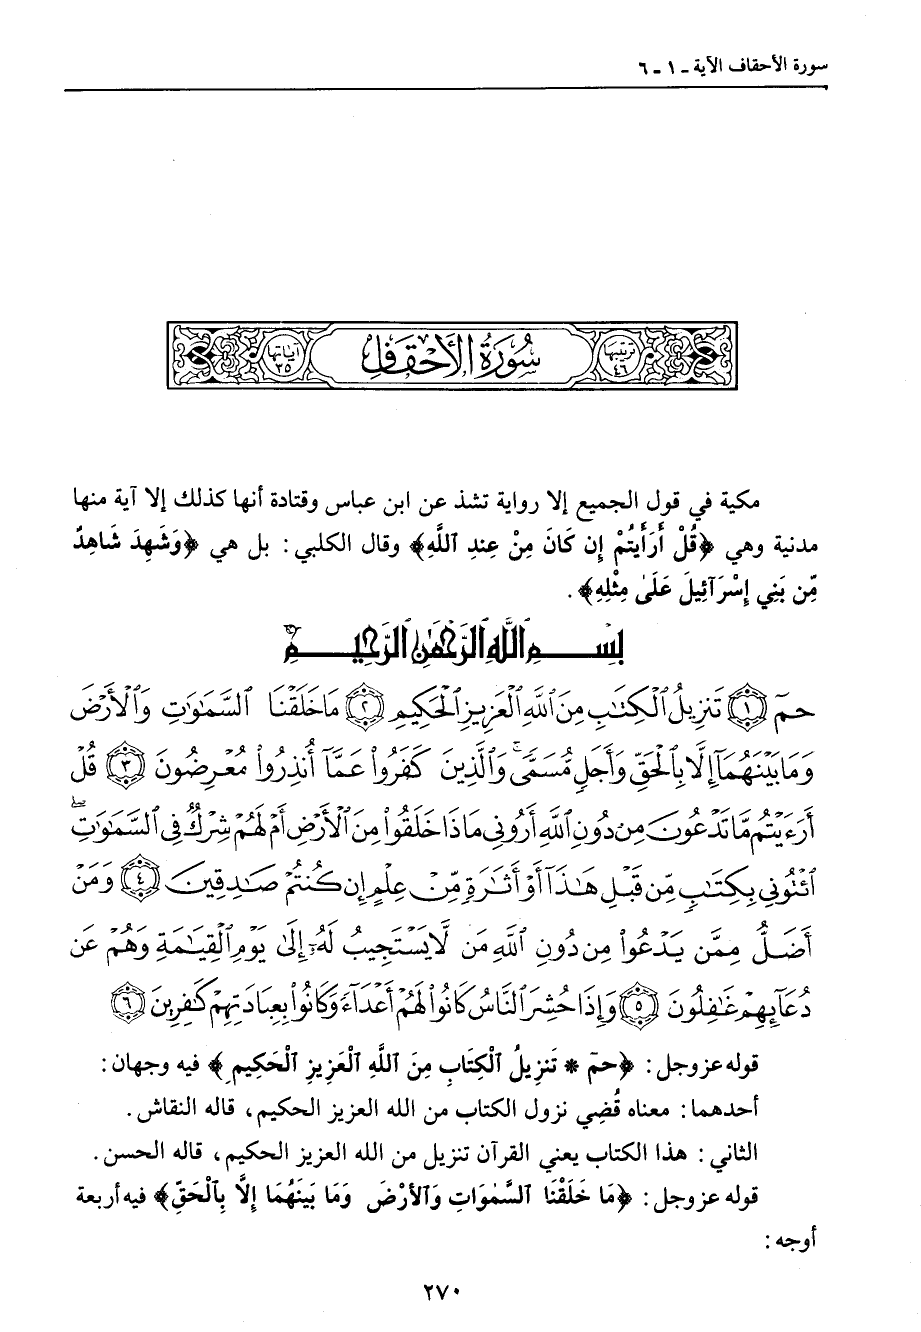 سورة الأحقاف الآية ـ ١ ـ ٦
ترتيبها ٤٦ سُورَةُ الأَحْقَافِ آياتها ٣٥
مكية في قول الجميع إلا رواية تشذ عن ابن عباس وقتادة أنها كذلك إلا آية منها
مدنية وهي ﴿قُلْ أَرَأَيْتُمْ إِن كَانَ مِنْ عِندِ ٱللَّهِ﴾ وقال الكلبي: بل هي ﴿وَشَهِدَ شَاهِدٌ
مِّن بَنِي إِسْرَآئِيلَ عَلَىٰ مِثْلِهِ﴾.
بِسْمِ ٱللَّهِ ٱلرَّحْمَٰنِ ٱلرَّحِيمِ
حمٓ ١ تَنزِيلُ ٱلْكِتَٰبِ مِنَ ٱللَّهِ ٱلْعَزِيزِ ٱلْحَكِيمِ ٢ مَا خَلَقْنَا ٱلسَّمَٰوَٰتِ وَٱلْأَرْضَ
وَمَا بَيْنَهُمَآ إِلَّا بِٱلْحَقِّ وَأَجَلٍ مُّسَمًّى ۚ وَٱلَّذِينَ كَفَرُوا۟ عَمَّآ أُنذِرُوا۟ مُعْرِضُونَ ٣ قُلْ
أَرَءَيْتُم مَّا تَدْعُونَ مِن دُونِ ٱللَّهِ أَرُونِى مَاذَا خَلَقُوا۟ مِنَ ٱلْأَرْضِ أَمْ لَهُمْ شِرْكٌ فِى ٱلسَّمَٰوَٰتِ ۖ
ٱئْتُونِى بِكِتَٰبٍ مِّن قَبْلِ هَٰذَآ أَوْ أَثَٰرَةٍ مِّنْ عِلْمٍ إِن كُنتُمْ صَٰدِقِينَ ٤ وَمَنْ
أَضَلُّ مِمَّن يَدْعُوا۟ مِن دُونِ ٱللَّهِ مَن لَّا يَسْتَجِيبُ لَهُۥٓ إِلَىٰ يَوْمِ ٱلْقِيَٰمَةِ وَهُمْ عَن
دُعَآئِهِمْ غَٰفِلُونَ ٥ وَإِذَا حُشِرَ ٱلنَّاسُ كَانُوا۟ لَهُمْ أَعْدَآءً وَكَانُوا۟ بِعِبَادَتِهِمْ كَٰفِرِينَ ٦
قوله عز وجل: ﴿حمٓ * تَنزِيلُ ٱلْكِتَابِ مِنَ ٱللَّهِ ٱلْعَزِيزِ ٱلْحَكِيمِ﴾ فيه وجهان:
أحدهما: معناه قُضي نزول الكتاب من الله العزيز الحكيم، قاله النقاش.
الثاني: هذا الكتاب يعني القرآن تنزيل من الله العزيز الحكيم، قاله الحسن.
قوله عز وجل: ﴿مَا خَلَقْنَا ٱلسَّمَٰوَاتِ وَٱلأَرْضَ وَمَا بَيْنَهُمَا إِلَّا بِٱلْحَقِّ﴾ فيه أربعة
أوجه:
٢٧٠